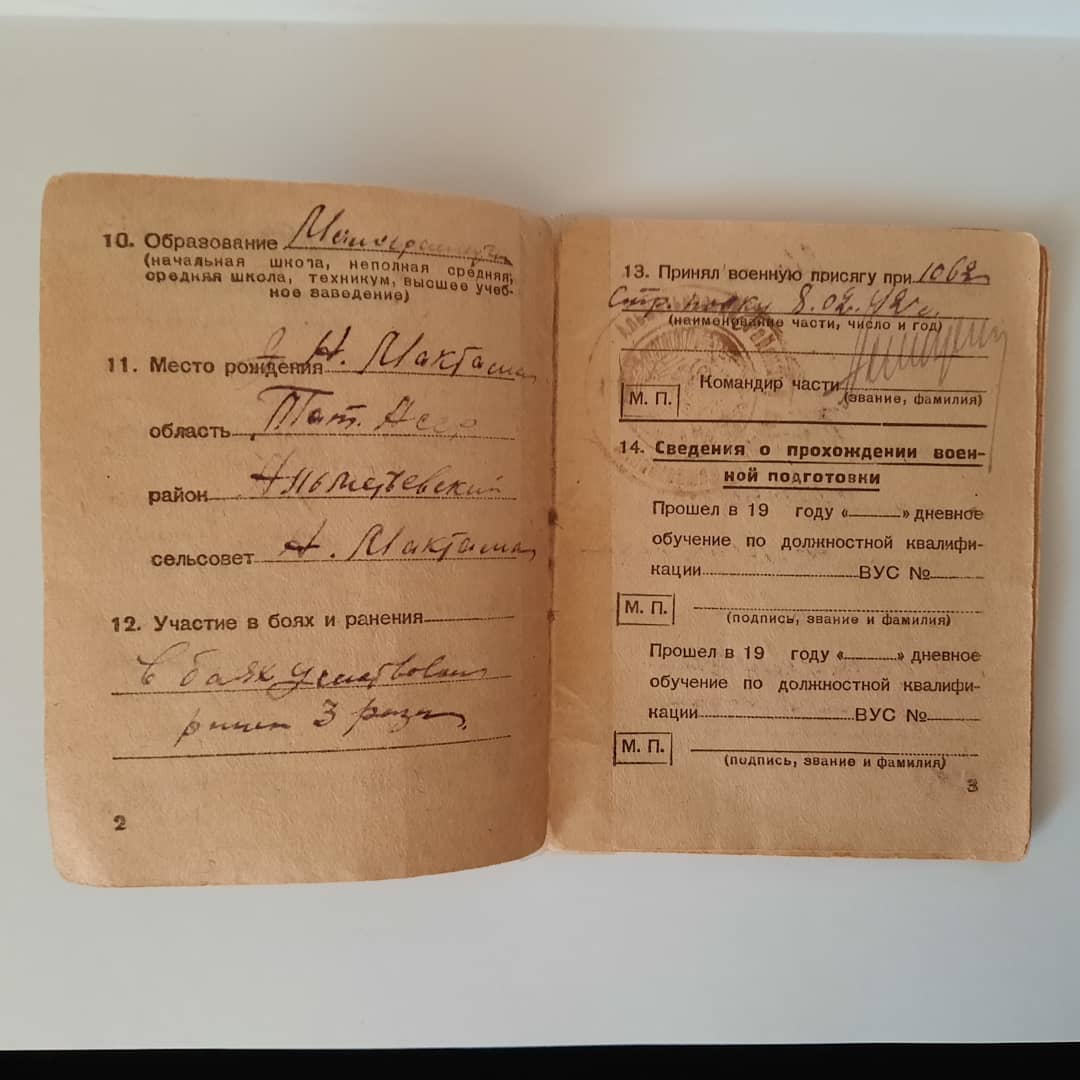 10. Образование Малограмотн
(начальная школа, неполная средняя,
средняя школа, техникум, высшее учеб-
ное заведение)
11. Место рождения Н. Мактама
область Тат. Асср
район Альметьевский
сельсовет Н. Мактама
12. Участие в боях и ранения
в боях участвовал
ранен 3 раза
2
13. Принял военную присягу при 1062
Стр. полку 8.02.42 г.
(наименование части, число и год)
Командир части
М. П.
(звание, фамилия)
14. Сведения о прохождении воен-
ной подготовки
Прошел в 19 году «» дневное
обучение по должностной квалифи-
кации ВУС №
М. П.
(подпись, звание и фамилия)
Прошел в 19 году «» дневное
обучение по должностной квалифи-
кации ВУС №
М. П.
(подпись, звание и фамилия)
3